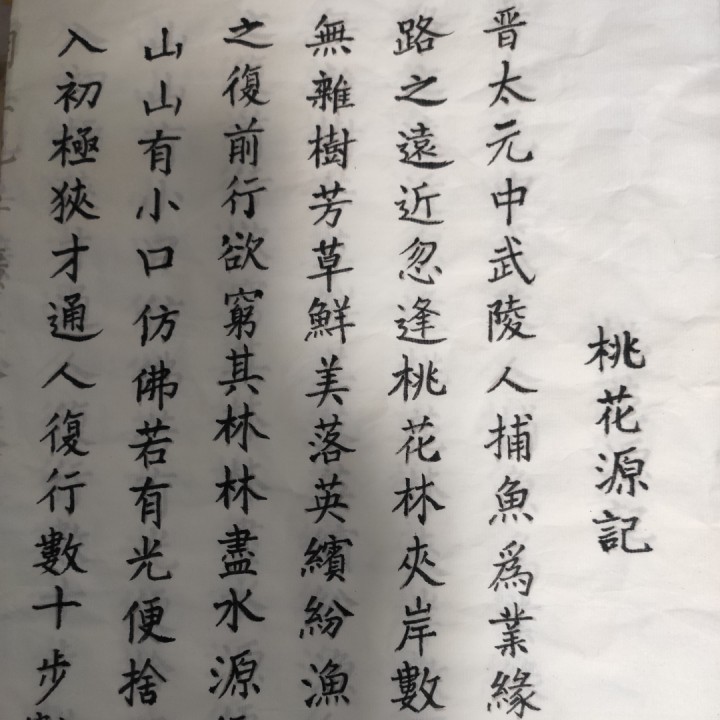 桃花源記
晋太元中武陵人捕魚為業緣
路之遠近忽逢桃花林夾岸數
無雜樹芳草鮮美落英繽紛漁
之復前行欲窮其林林盡水源
山山有小口仿佛若有光便捨
入初極狹才通人復行數十步